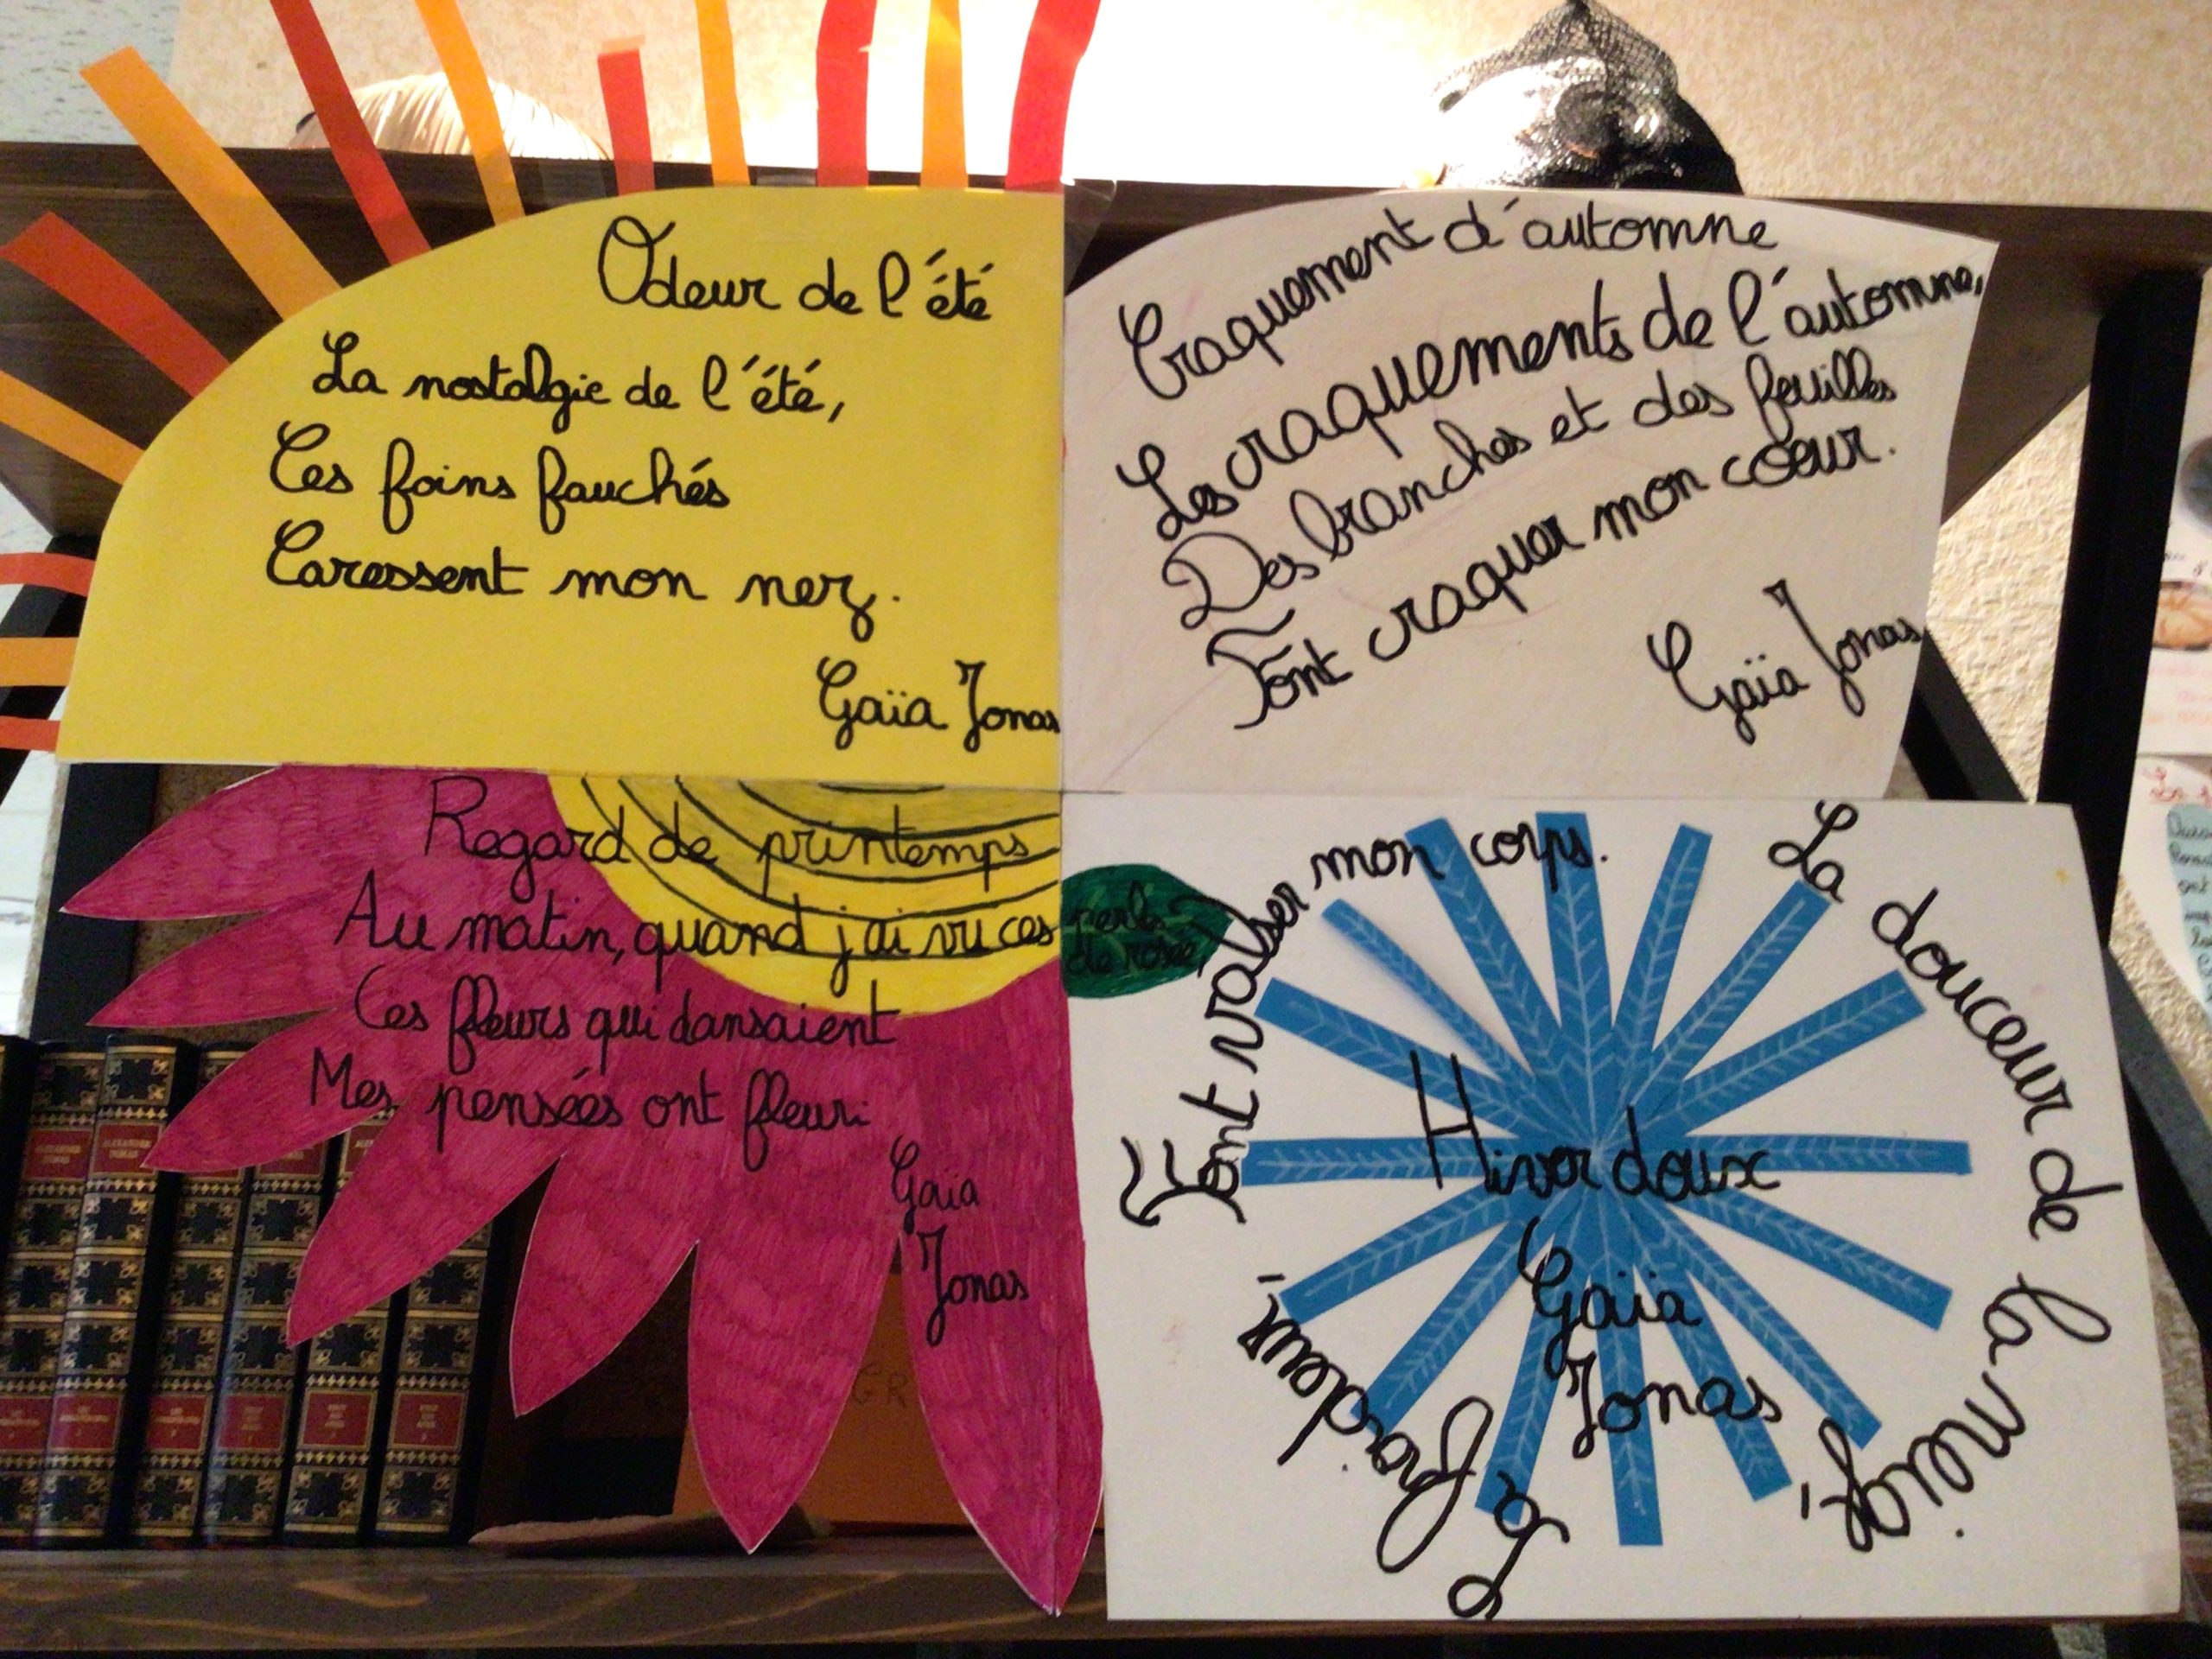 Odeur de l'été
La nostalgie de l'été,
Ces foins fauchés
Caressent mon nez.
Gaïa Jonas
Craquement d'automne
Les craquements de l'automne,
Des branches et des feuilles
Font craquer mon coeur.
Gaïa Jonas
Regard de printemps
Au matin, quand j'ai vu ces
perles
de rosée,
Ces fleurs qui dansaient
Mes pensées ont fleuri
Gaïa
Jonas
Hiver doux
La douceur de la neige,
La froideur,
Font valser mon corps.
Gaïa
Jonas